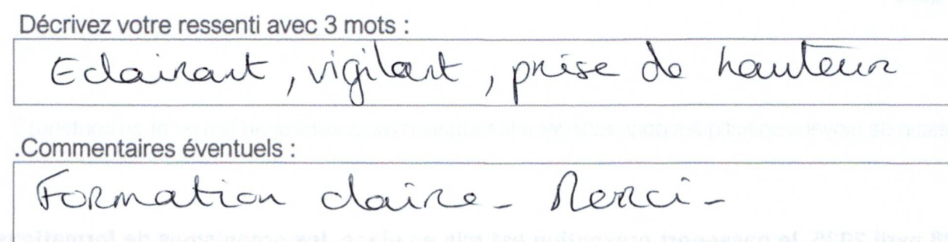 Décrivez votre ressenti avec 3 mots :
Eclairant, vigilant, prise de hauteur
Commentaires éventuels :
Formation claire - Merci -